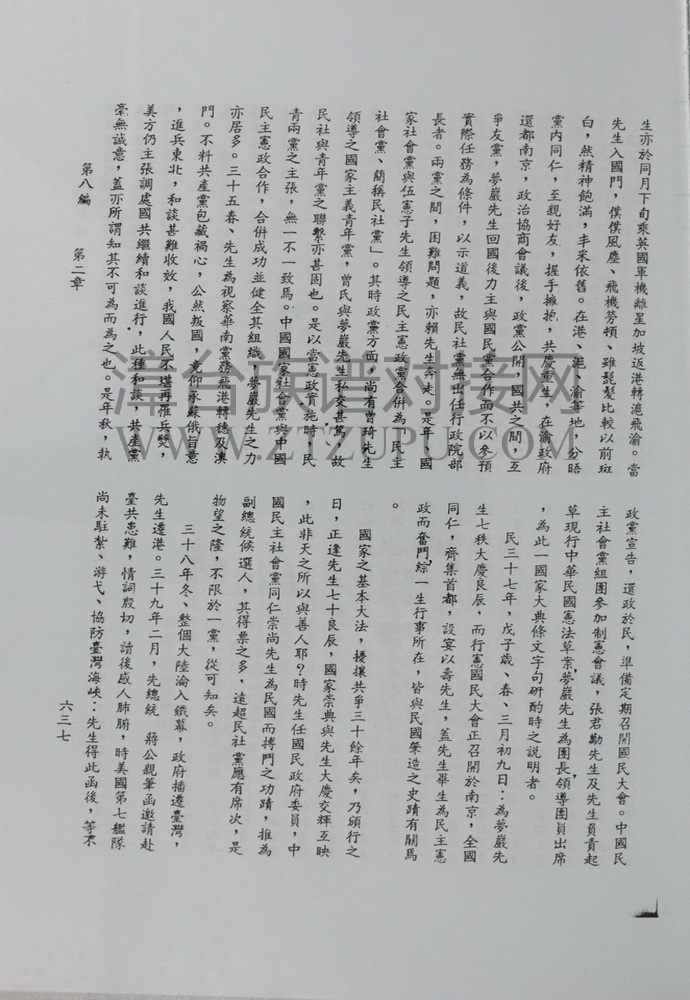 生亦於同月下旬乘英國軍機離星加坡返港轉滬飛渝。當
先生入國門，僕僕風塵、飛機勞頓、雖髭髮比較以前斑
白，然精神飽滿，丰采依舊。在港、滬、渝等地，分晤
黨內同仁，至親好友，握手擁抱，共慶重生，在渝政府
還都南京，政治協商會議後，政黨公開，國共之間，互
爭友黨，夢巖先生回國後力主與國民黨合作而不以參預
實際任務為條件，以示道義，故民社黨無出任行政院部
長者。兩黨之間，困難問題，亦賴先生奔走。是年，國
家社會黨與伍憲子先生領導之民主憲政黨合併為「民主
社會黨、簡稱民社黨」。其時政黨方面，尚有曾琦先生
領導之國家主義青年黨，曾氏與夢巖先生私交甚篤，故
民社與青年黨之聯繫亦甚固也。是以當憲政實施時，民
青兩黨之主張，無一不一致焉。中國國家社會黨與中國
民主憲政合作，合併成功並健全其組織，夢巖先生之力
亦居多。三十五春、先生為視察華南黨務飛港轉穗及澳
門。不料共產黨包藏禍心，公然叛國，竟仰承蘇俄旨意
，進兵東北，和談甚難收效，我國人民不堪再罹兵燹，
美方仍主張調處國共繼續和談進行，此種和談，共產黨
毫無誠意，蓋亦所謂知其不可為而為之也。是年秋，執
政黨宣告，還政於民，準備定期召開國民大會。中國民
主社會黨組團參加制憲會議，張君勱先生及先生負責起
草現行中華民國憲法草案，夢巖先生為團長領導團員出席
，為此一國家大典條文字句研酌時之說明者。
民三十七年，戊子歲、春、三月初九日：為夢巖先
生七秩大慶良辰，而行憲國民大會正召開於南京，全國
同仁，齊集首都，設宴以壽先生，蓋先生畢生為民主憲
政而奮鬥，綜一生行事所在，皆與民國肇造之史蹟有關焉
。
國家之基本大法，擾攘共爭三十餘年矣，乃頒行之
日，正逢先生七十良辰，國家崇典與先生大慶交輝互映
，此非天之所以與善人耶？時先生任國民政府委員，中
國民主社會黨同仁崇尚先生為民國而搏鬥之功蹟，推為
副總統候選人，其得票之多，遠超民社黨應有席次，是
物望之隆，不限於一黨，從可知矣。
三十八年冬、整個大陸淪入鐵幕，政府播遷臺灣，
先生遷港。三十九年二月，先總統　蔣公親筆函邀請赴
臺共患難，情詞殷切，請後感人肺腑，時美國第七艦隊
尚未駐紮、游弋、協防臺灣海峽：先生得此函後，等不
第八編　第二章
六三七
漳台族谱对接网
WWW.ZTZUPU.COM